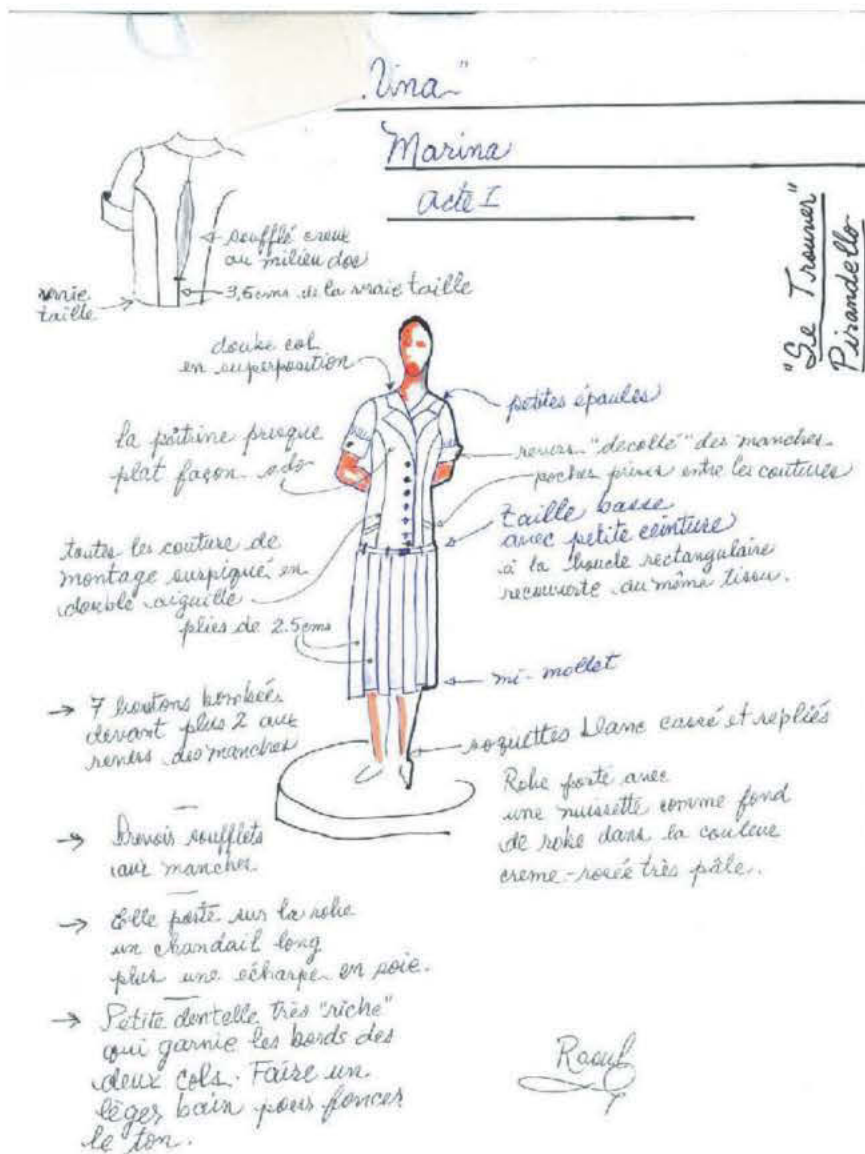 "Vina"
Marina
Acte I
"Se Trouver"
Pirandello
soufflé creux
au milieu dos
3,5cms de la vraie taille
vraie
taille
double col
en superposition
petites épaules
la poitrine presque
plat façon ado
revers "décollé" des manches
poches prises entre les coutures
taille basse
avec petite ceinture
à la boucle rectangulaire
recouverte au même tissu.
toutes les couture de
montage surpiqué en
double aiguille
plies de 2.5cms
mi-mollet
→ 7 boutons bombés
devant plus 2 aux
revers des manches
soquettes blanc cassé et repliés
Robe porté avec
une nuissette comme fond
de robe dans la couleur
creme-rosée très pâle.
→ Prevois soufflets
aux manches
→ Elle porte sur la robe
un chandail long
plus une écharpe en soie.
→ Petite dentelle très "riche"
qui garnie les bords des
deux cols. Faire un
léger bain pour foncer
le ton.
Raoul